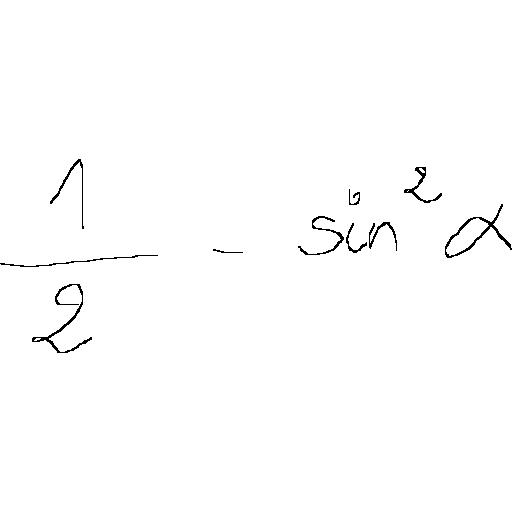 \frac{1}{2} - \sin^2 \alpha